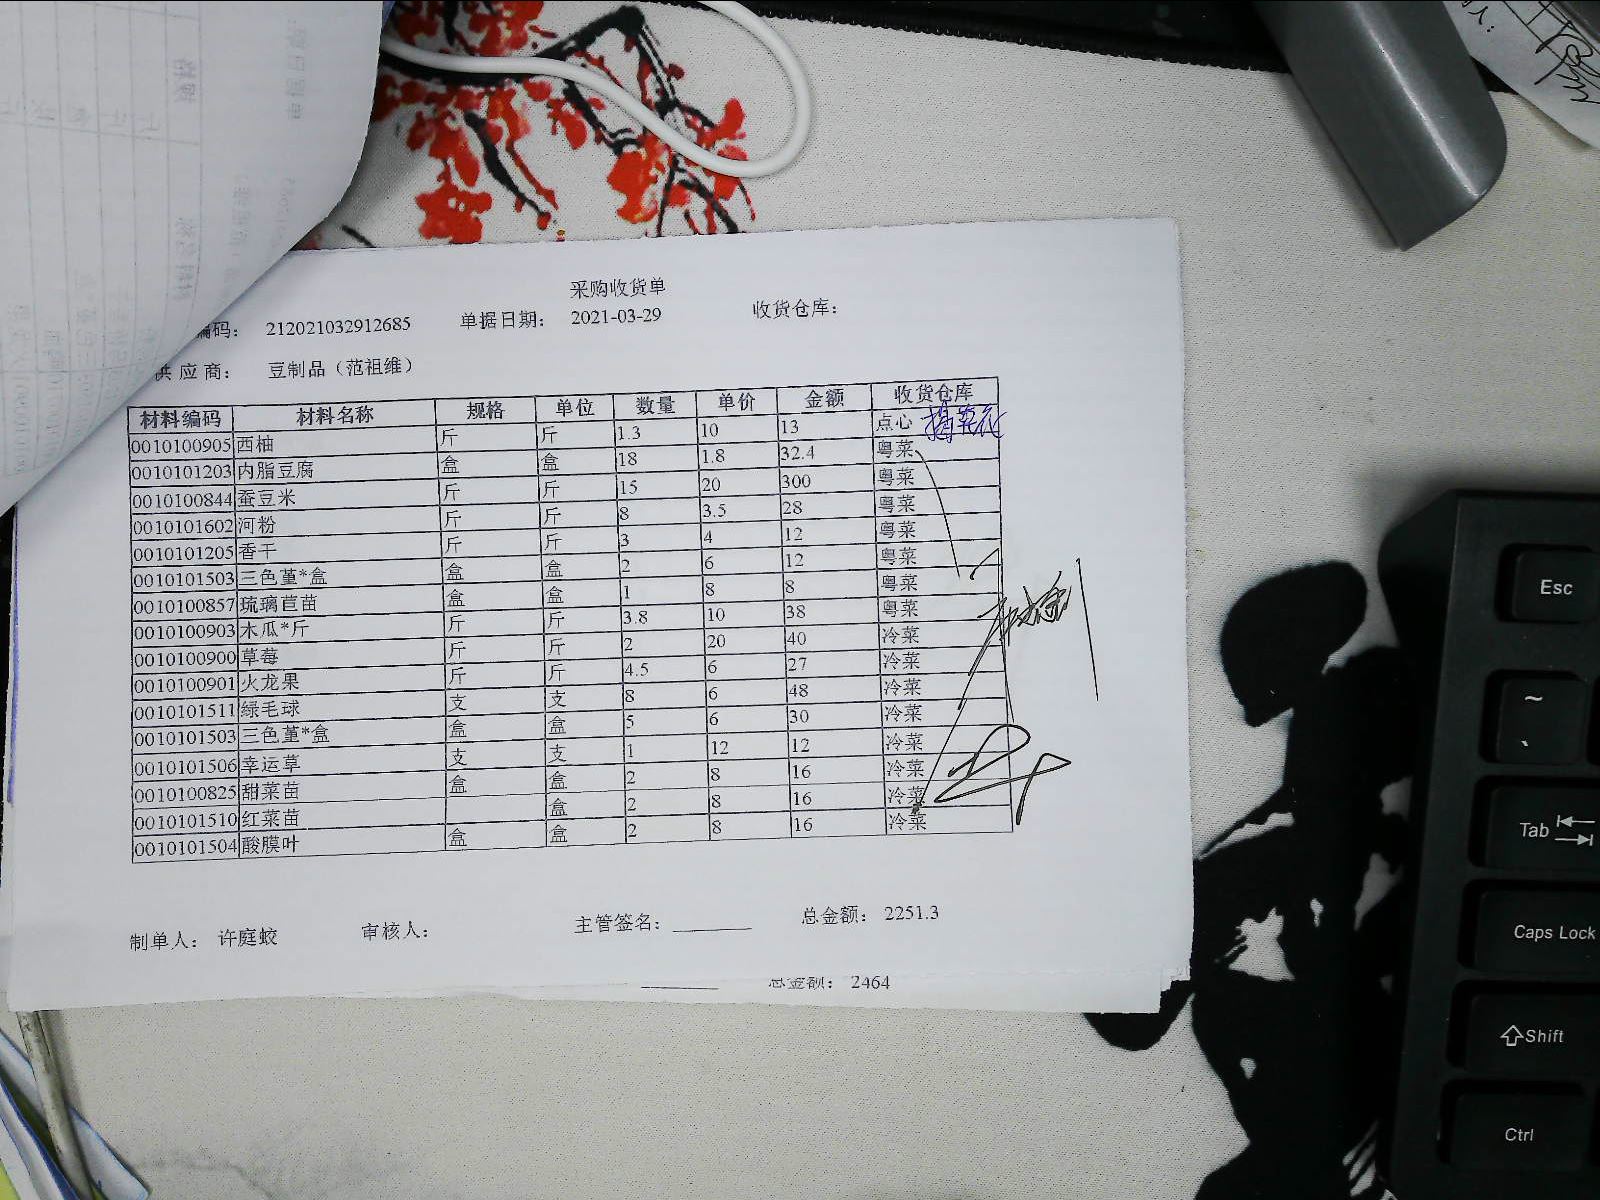 采购收货单
编码： 212021032912685 单据日期： 2021-03-29 收货仓库：
供 应 商： 豆制品（范祖维）
材料编码 材料名称 规格 单位 数量 单价 金额 收货仓库
0010100905 西柚 斤 斤 1.3 10 13 点心
0010101203 内脂豆腐 盒 盒 18 1.8 32.4 粤菜
0010100844 蚕豆米 斤 斤 15 20 300 粤菜
0010101602 河粉 斤 斤 8 3.5 28 粤菜
0010101205 香干 斤 斤 3 4 12 粤菜
0010101503 三色堇*盒 盒 盒 2 6 12 粤菜
0010100857 琉璃苣苗 盒 盒 1 8 8 粤菜
0010100903 木瓜*斤 斤 斤 3.8 10 38 粤菜
0010100900 草莓 斤 斤 2 20 40 冷菜
0010100901 火龙果 斤 斤 4.5 6 27 冷菜
0010101511 绿毛球 支 支 8 6 48 冷菜
0010101503 三色堇*盒 盒 盒 5 6 30 冷菜
0010101506 幸运草 支 支 1 12 12 冷菜
0010100825 甜菜苗 盒 盒 2 8 16 冷菜
0010101510 红菜苗 盒 2 8 16 冷菜
0010101504 酸膜叶 盒 盒 2 8 16 冷菜
制单人： 许庭蛟 审核人： 主管签名： 总金额： 2251.3
总金额： 2464
Esc
~
Tab
Caps Lock
Shift
Ctrl